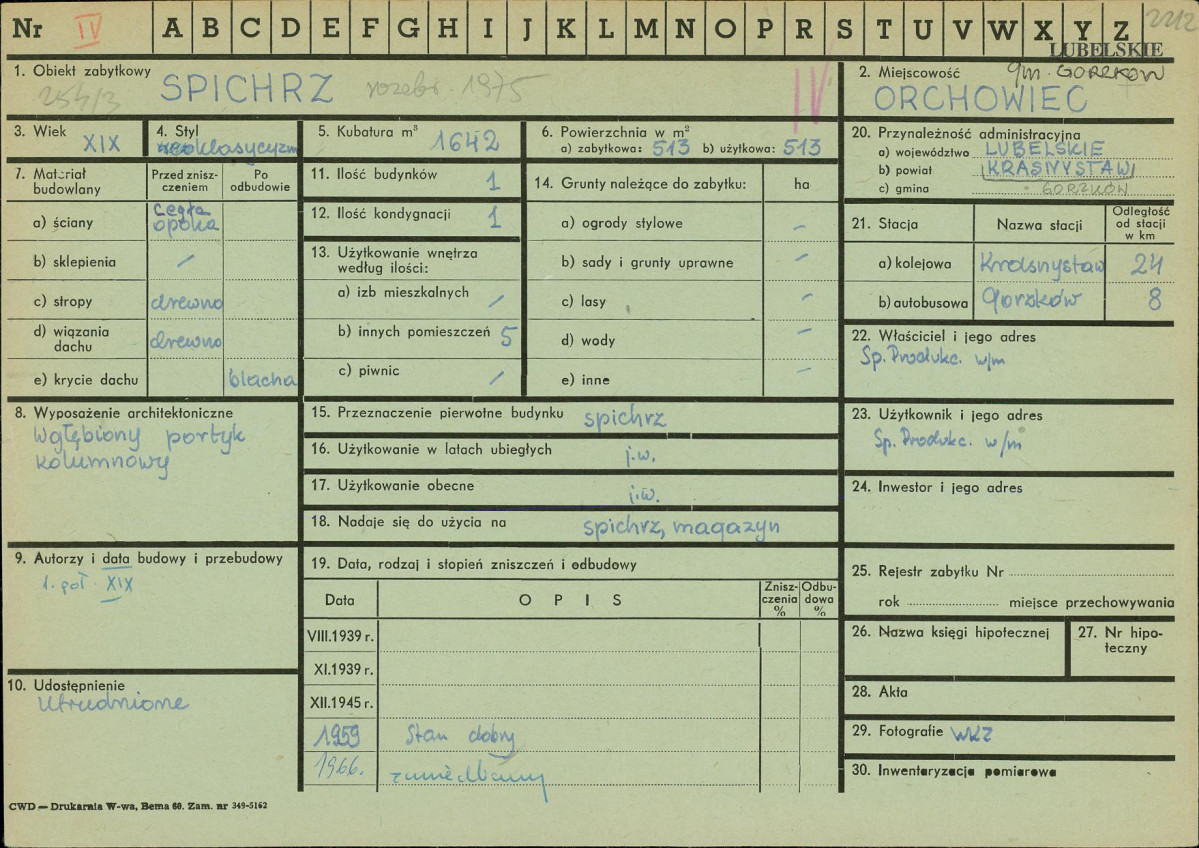 Nr IV A B C D E F G H I J K L M N O P R S T U V W X Y Z 2212
LUBELSKIE
1. Obiekt zabytkowy
254/3 SPICHRZ rozebr. 1975 IV
2. Miejscowość gm. GORZKÓW
ORCHOWIEC
3. Wiek
XIX
4. Styl
neoklasycyzm
5. Kubatura m³
1642
6. Powierzchnia w m²
a) zabytkowa: 513 b) użytkowa: 513
20. Przynależność administracyjna
a) województwo LUBELSKIE
b) powiat KRASNYSTAW
c) gmina GORZKÓW
7. Materiał budowlany
Przed zniszczeniem
Po odbudowie
a) ściany cegła
opoka
b) sklepienia /
c) stropy drewno
d) wiązania dachu drewno
e) krycie dachu blacha
11. Ilość budynków 1
12. Ilość kondygnacji 1
13. Użytkowanie wnętrza
według ilości:
a) izb mieszkalnych /
b) innych pomieszczeń 5
c) piwnic /
14. Grunty należące do zabytku: ha
a) ogrody stylowe –
b) sady i grunty uprawne –
c) lasy –
d) wody –
e) inne –
21. Stacja Nazwa stacji Odległość od stacji w km
a) kolejowa Krasnystaw 24
b) autobusowa Gorzków 8
22. Właściciel i jego adres
Sp. Produkc. w/m
8. Wyposażenie architektoniczne
Wgłębiony portyk
kolumnowy
15. Przeznaczenie pierwotne budynku spichrz
16. Użytkowanie w latach ubiegłych j.w.
17. Użytkowanie obecne j.w.
18. Nadaje się do użycia na spichrz, magazyn
23. Użytkownik i jego adres
Sp. Produkc. w/m
24. Inwestor i jego adres
9. Autorzy i data budowy i przebudowy
1. poł. XIX
10. Udostępnienie
utrudnione
19. Data, rodzaj i stopień zniszczeń i odbudowy
Data O P I S Zniszczenia % Odbudowa %
VIII.1939 r.
XI.1939 r.
XII.1945 r.
1959 Stan dobry
1966. zaniedbany
25. Rejestr zabytku Nr
rok miejsce przechowywania
26. Nazwa księgi hipotecznej
27. Nr hipoteczny
28. Akta
29. Fotografie WKZ
30. Inwentaryzacja pomiarowa
CWD — Drukarnia W-wa, Bema 60. Zam. nr 349-5162